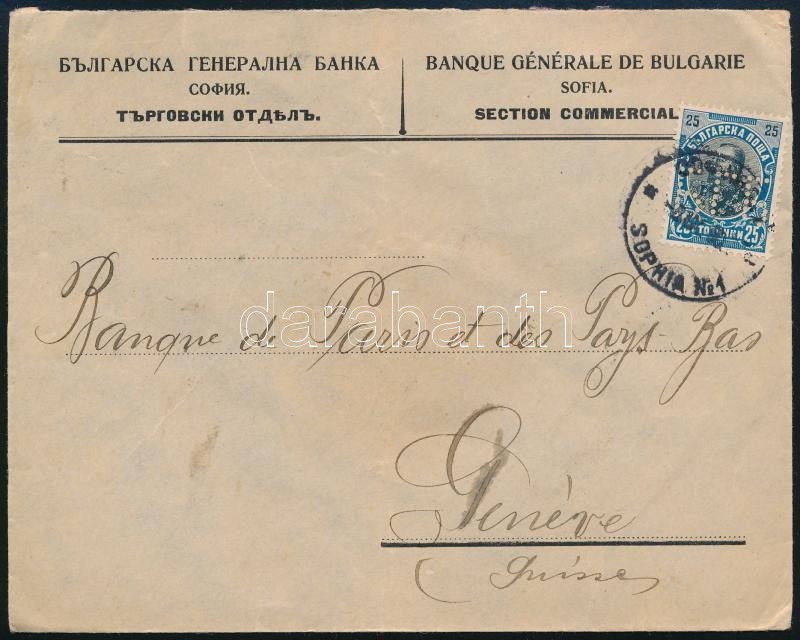 БЪЛГАРСКА ГЕНЕРАЛНА БАНКА
СОФИЯ.
ТЪРГОВСКИ ОТДѢЛЪ.
BANQUE GÉNÉRALE DE BULGARIE
SOFIA.
SECTION COMMERCIAL
25 25
БЪЛГАРСКА ПОЩА
25 СТОТИНКИ 25
SOPHIA №1
darabanth
Banque de Paris et des Pays-Bas
Genève
(Suisse)